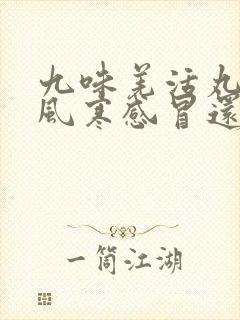 九味羌活丸
風寒感冒還
一筒江湖